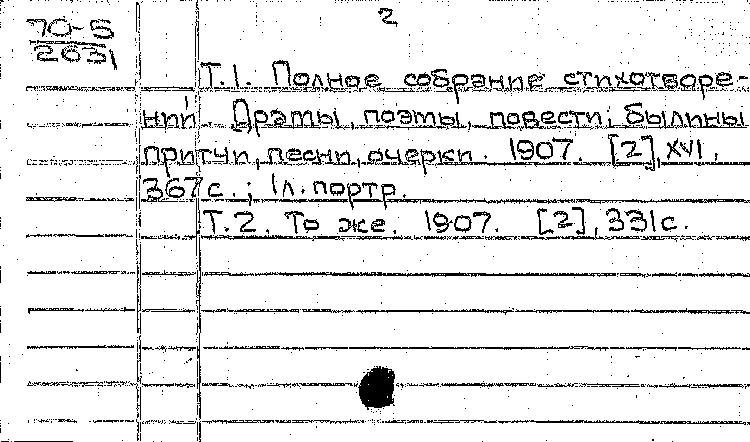 2
70-5
2031
Т.1. Полное собрание стихотворе-
ний. Драмы, поэмы, повести, былины
притчи, песни, очерки. 1907. [2], XVI,
367 с.; 1 л. портр.
Т.2. То же. 1907. [2], 331 с.